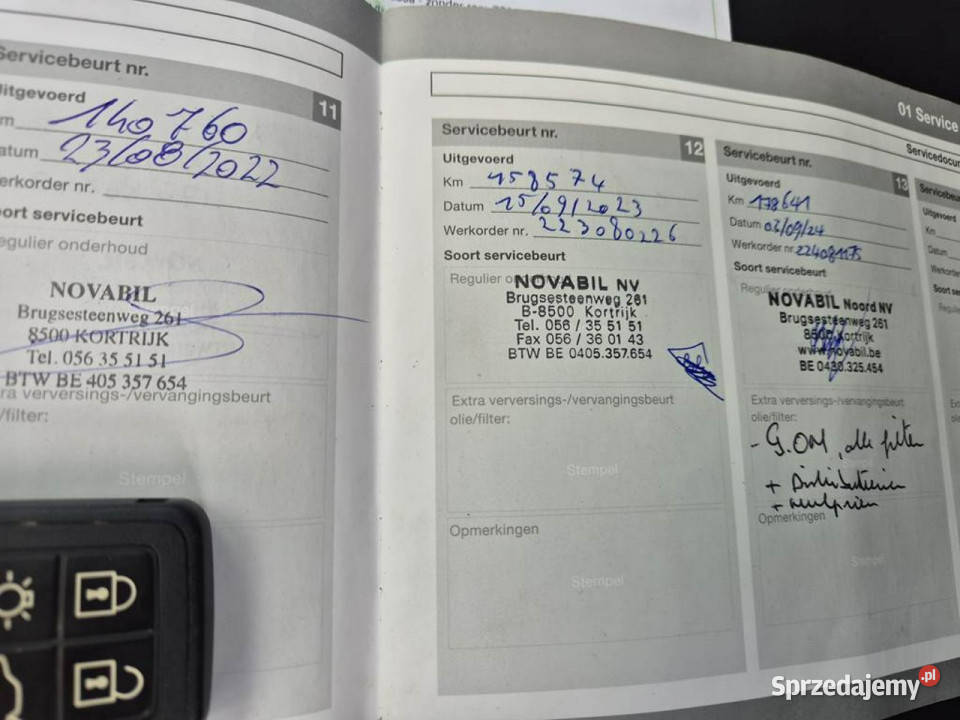 Servicebeurt nr.
11
Uitgevoerd
140 760
23/08/2022
erkorder nr.
ort servicebeurt
egulier onderhoud
NOVABIL
Brugsesteenweg 261
8500 KORTRIJK
Tel. 056 35 51 51
BTW BE 405 357 654
ra verversings-/vervangingsbeurt
/filter:
Stempel
Servicebeurt nr.
12
Uitgevoerd
Km 158574
Datum 15/09/2023
Werkorder nr. 223080226
Soort servicebeurt
Regulier onderhoud
NOVABIL NV
Brugsesteenweg 261
B-8500 Kortrijk
Tel. 056 / 35 51 51
Fax 056 / 36 01 43
BTW BE 0405.357.654
Extra verversings-/vervangingsbeurt
olie/filter:
Stempel
Opmerkingen
Stempel
01 Service
Servicedocum
Servicebeurt nr.
13
Uitgevoerd
Km 178641
Datum 03/09/24
Werkorder nr. 224081175
Soort servicebeurt
Regulier onderhoud
NOVABIL Noord NV
Brugsesteenweg 261
8500 Kortrijk
www.novabil.be
BE 0430.325.454
Extra verversings-/vervangingsbeurt
olie/filter:
- G.OH, alle filters
+ Distributieriem
+ multiriem
Opmerkingen
Stempel
Servicebeurt
Uitgevoerd
Km
Datum
Werkorder
Soort ser
Regulier
Sprzedajemy.pl